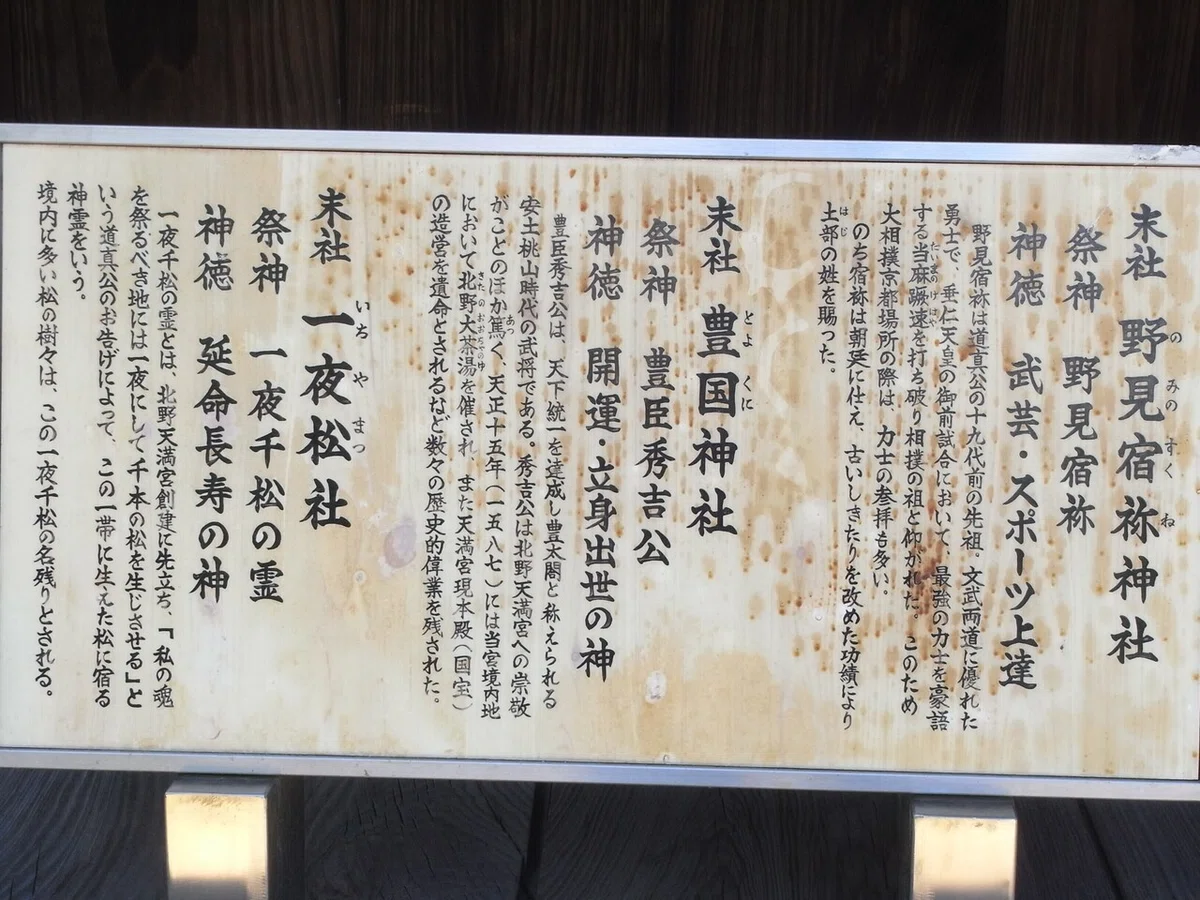 末社 野見宿祢神社
のみのすくね
祭神 野見宿祢
神徳 武芸・スポーツ上達
野見宿祢は道真公の十九代前の先祖。文武両道に優れた
勇士で、垂仁天皇の御前試合において、最強の力士を豪語
する当麻蹶速を打ち破り相撲の祖と仰がれた。このため
たいまのけはや
大相撲京都場所の際は、力士の参拝も多い。
のち宿祢は朝廷に仕え、古いしきたりを改めた功績により
土部の姓を賜った。
はじ
末社 豊国神社
とよくに
祭神 豊臣秀吉公
神徳 開運・立身出世の神
豊臣秀吉公は、天下統一を達成し豊太閤と称えられる
安土桃山時代の武将である。秀吉公は北野天満宮への崇敬
がことのほか篤く、天正十五年（一五八七）には当宮境内地
あつ
において北野大茶湯を催され、また天満宮現本殿（国宝）
きたのおおちゃのゆ
の造営を遺命とされるなど数々の歴史的偉業を残された。
末社 一夜松社
いちやまつ
祭神 一夜千松の霊
神徳 延命長寿の神
一夜千松の霊とは、北野天満宮創建に先立ち、「私の魂
を祭るべき地には一夜にして千本の松を生じさせる」と
いう道真公のお告げによって、この一帯に生えた松に宿る
神霊をいう。
境内に多い松の樹々は、この一夜千松の名残りとされる。